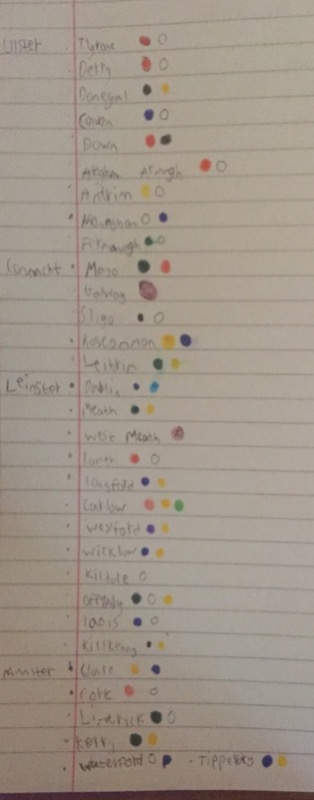 Ulster Tyrone
Derry
Donegal
Cavan
Down
Armagh
Antrim
Monaghan
Connacht Mayo
Galway
Sligo
Roscommon
Leitrim
Leinster Dublin
Meath
West Meath
Louth
Longford
Carlow
Wexford
Wicklow
Kildare
Offaly
laois
Kilkenny
munster Clare
Cork
Limerick
kerry
Waterford Tipperary